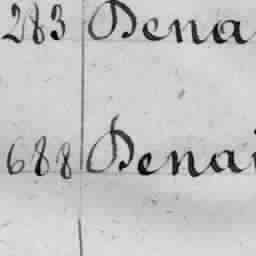 283 Dena
688 Denai